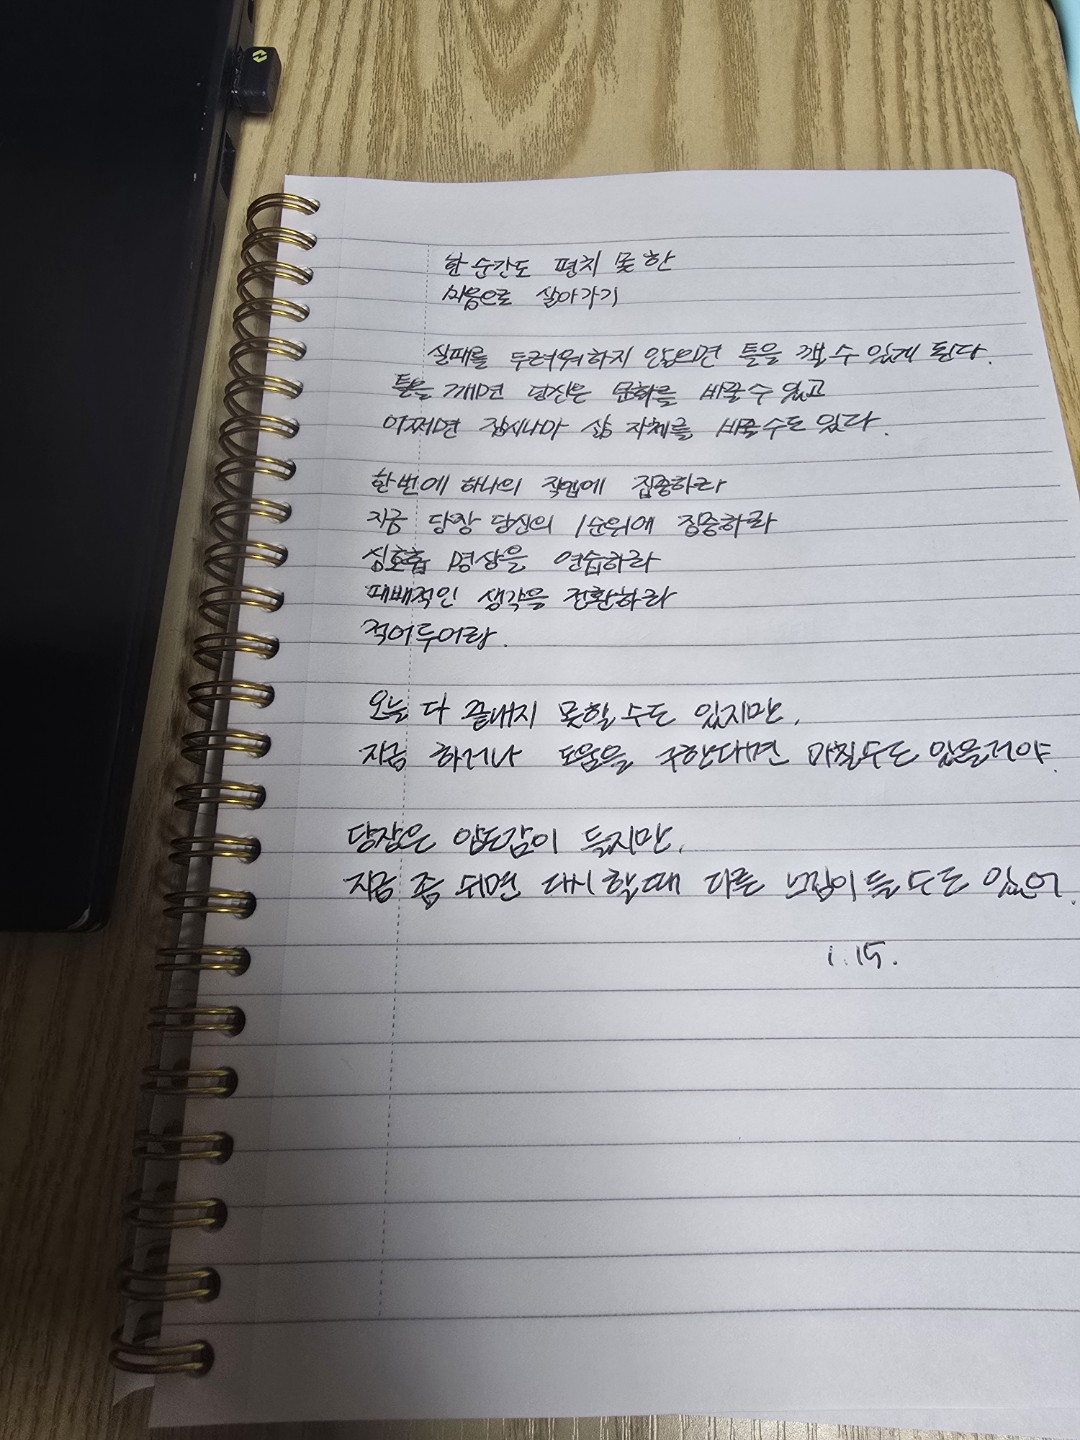 한 순간도 편치 못한
마음으로 살아가기
실패를 두려워하지 않으면 틀을 깰 수 있게 된다.
틀을 깨면 당신은 문화를 바꿀 수 있고
어쩌면 잠시나마 삶 자체를 바꿀 수도 있다.
한번에 하나의 작업에 집중하라
지금 당장 당신의 1순위에 집중하라
심호흡 명상을 연습하라
패배적인 생각을 전환하라
적어두어라.
오늘 다 끝내지 못할 수도 있지만,
지금 하거나 도움을 구한다면 마칠수도 있을거야.
당장은 압도감이 들지만,
지금 좀 쉬면 다시 할때 다른 느낌이 들 수도 있어.
1.15.